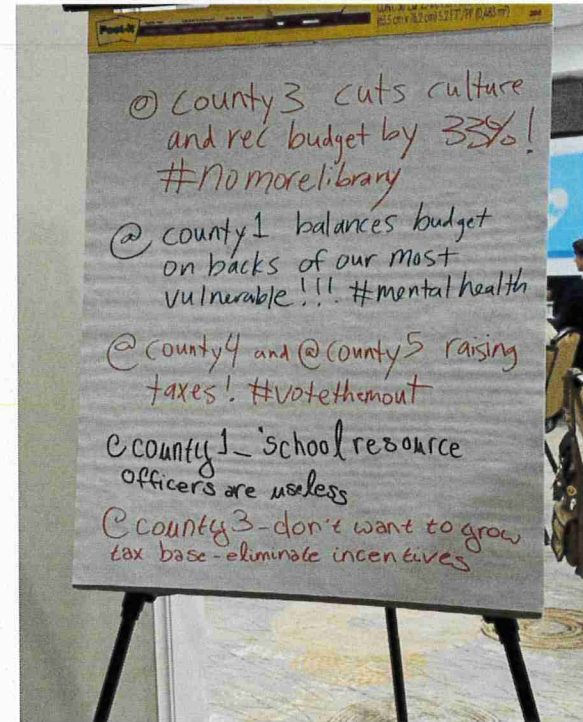 Post-it
@ county3 cuts culture
and rec budget by 33%!
#nomorelibrary
@ county1 balances budget
on backs of our most
vulnerable!!! #mentalhealth
@county4 and @county5 raising
taxes! #votethemout
@county1- 'school resource
officers are useless
@county3-don't want to grow
tax base-eliminate incentives